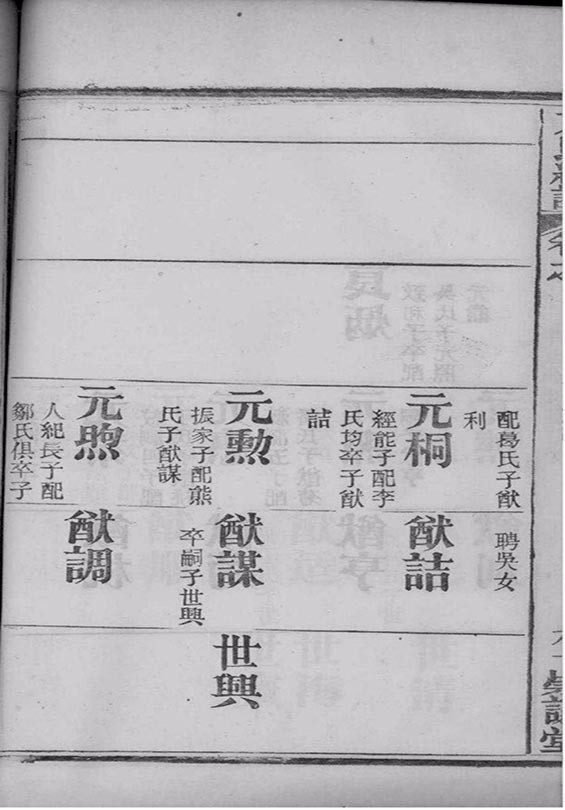 配葛氏子猷
利
元桐
經能子配李
氏均卒子猷
詰
元勳
振家子配熊
氏子猷謀
元煦
人紀長子配
鄒氏俱卒子
聘吳女
猷詰
猷謀
卒嗣子世興
猷調
世興